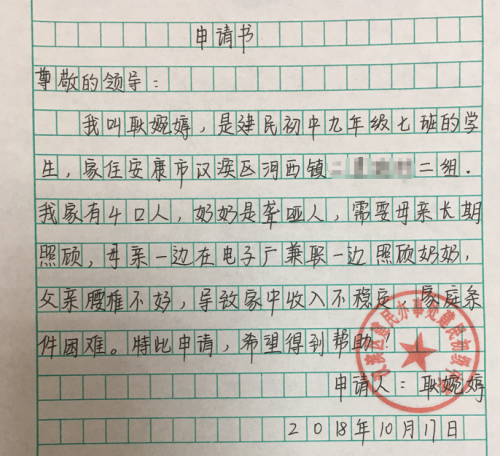 申请书
尊敬的领导：
我叫耿婉婷，是建民初中九年级七班的学
生，家住安康市汉滨区河西镇二组.
我家有4口人，奶奶是聋哑人，需要母亲长期
照顾，母亲一边在电子厂兼职一边照顾奶奶，
父亲腰椎不好，导致家中收入不稳定，家庭条
件困难。特此申请，希望得到帮助！
申请人：耿婉婷
2018年10月17日